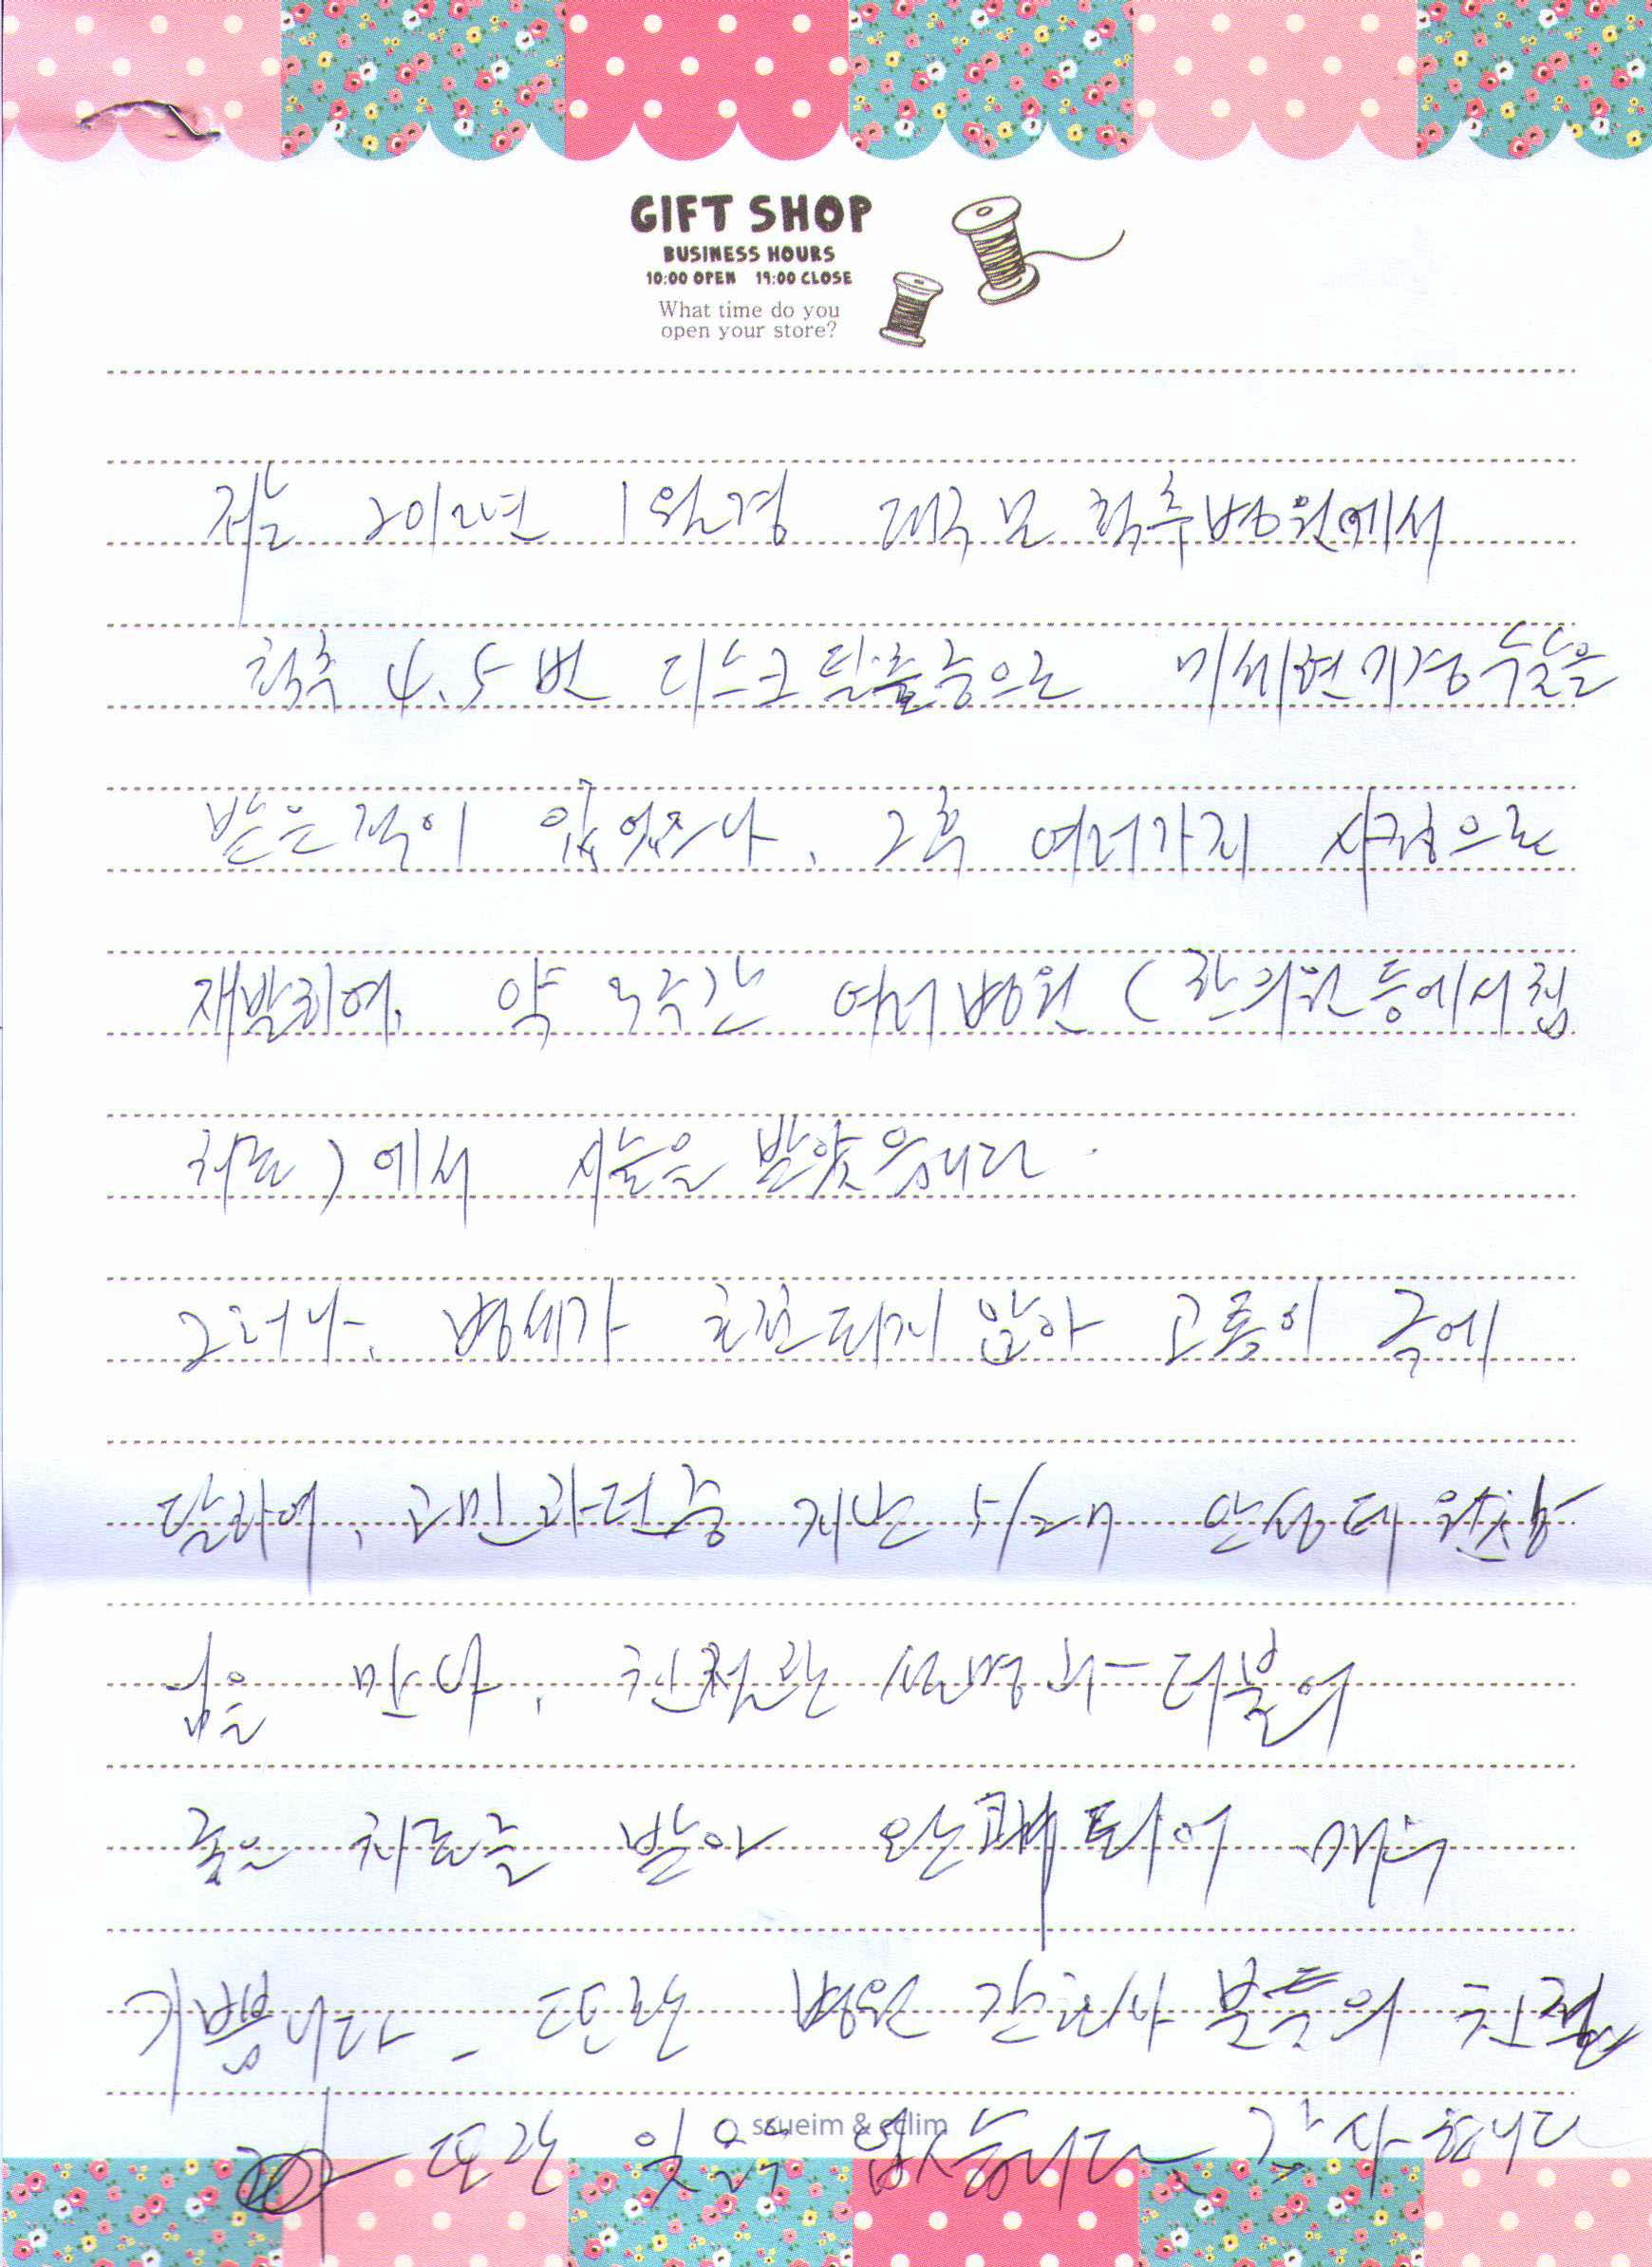 GIFT SHOP
BUSINESS HOURS
10:00 OPEN 19:00 CLOSE
What time do you
open your store?
저는 2012년 1월경 대구 모 척추병원에서
척추 4.5번 디스크 탈출증으로 미세현미경수술을
받은적이 있었으나, 그후 여러가지 사정으로
재발되여, 약 3주간 여러병원 (한의원등에서 침
치료) 에서 시술을 받았읍니다.
그러나, 병세가 호전되지 않아 고통이 극에
달하여, 고민하던중 지난 5/27 안성대 원장
님을 만나, 친절한 설명과 더불어
좋은 치료를 받아 완쾌되어 매우
기쁩니다. 또한 병원 간호사 분들의 친절
또한 잊을수 없습니다. 감사합니다
ssueim & eclim